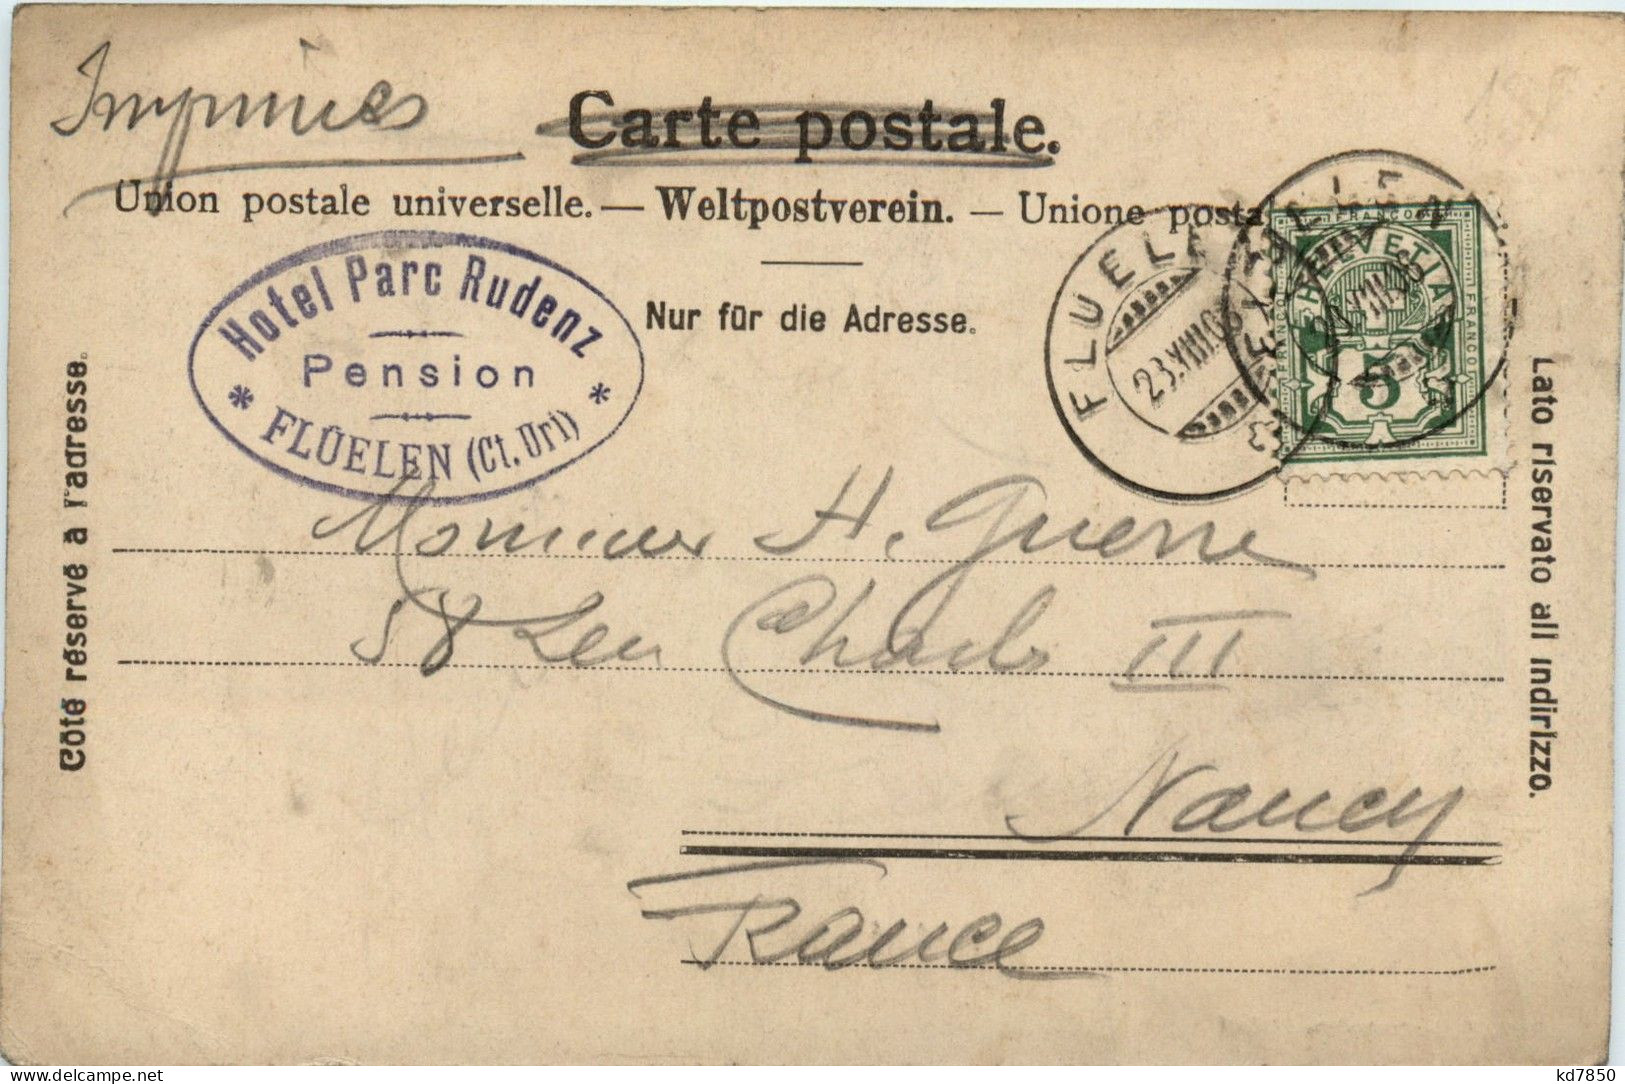 Imprimés
Carte postale.
Union postale universelle. — Weltpostverein. — Unione posta
Nur für die Adresse.
Hotel Parc Rudenz
Pension
* FLÜELEN (Ct. Uri) *
FLUELEN
23.VIII.
HELVETIA
FRANCO
FRANCO
FRANCO
5
Côté réservé à l'adresse.
Lato riservato all indirizzo.
Monsieur H. Guerre
58 Rue Charles III
Nancy
France
delcampe.net
kd7850